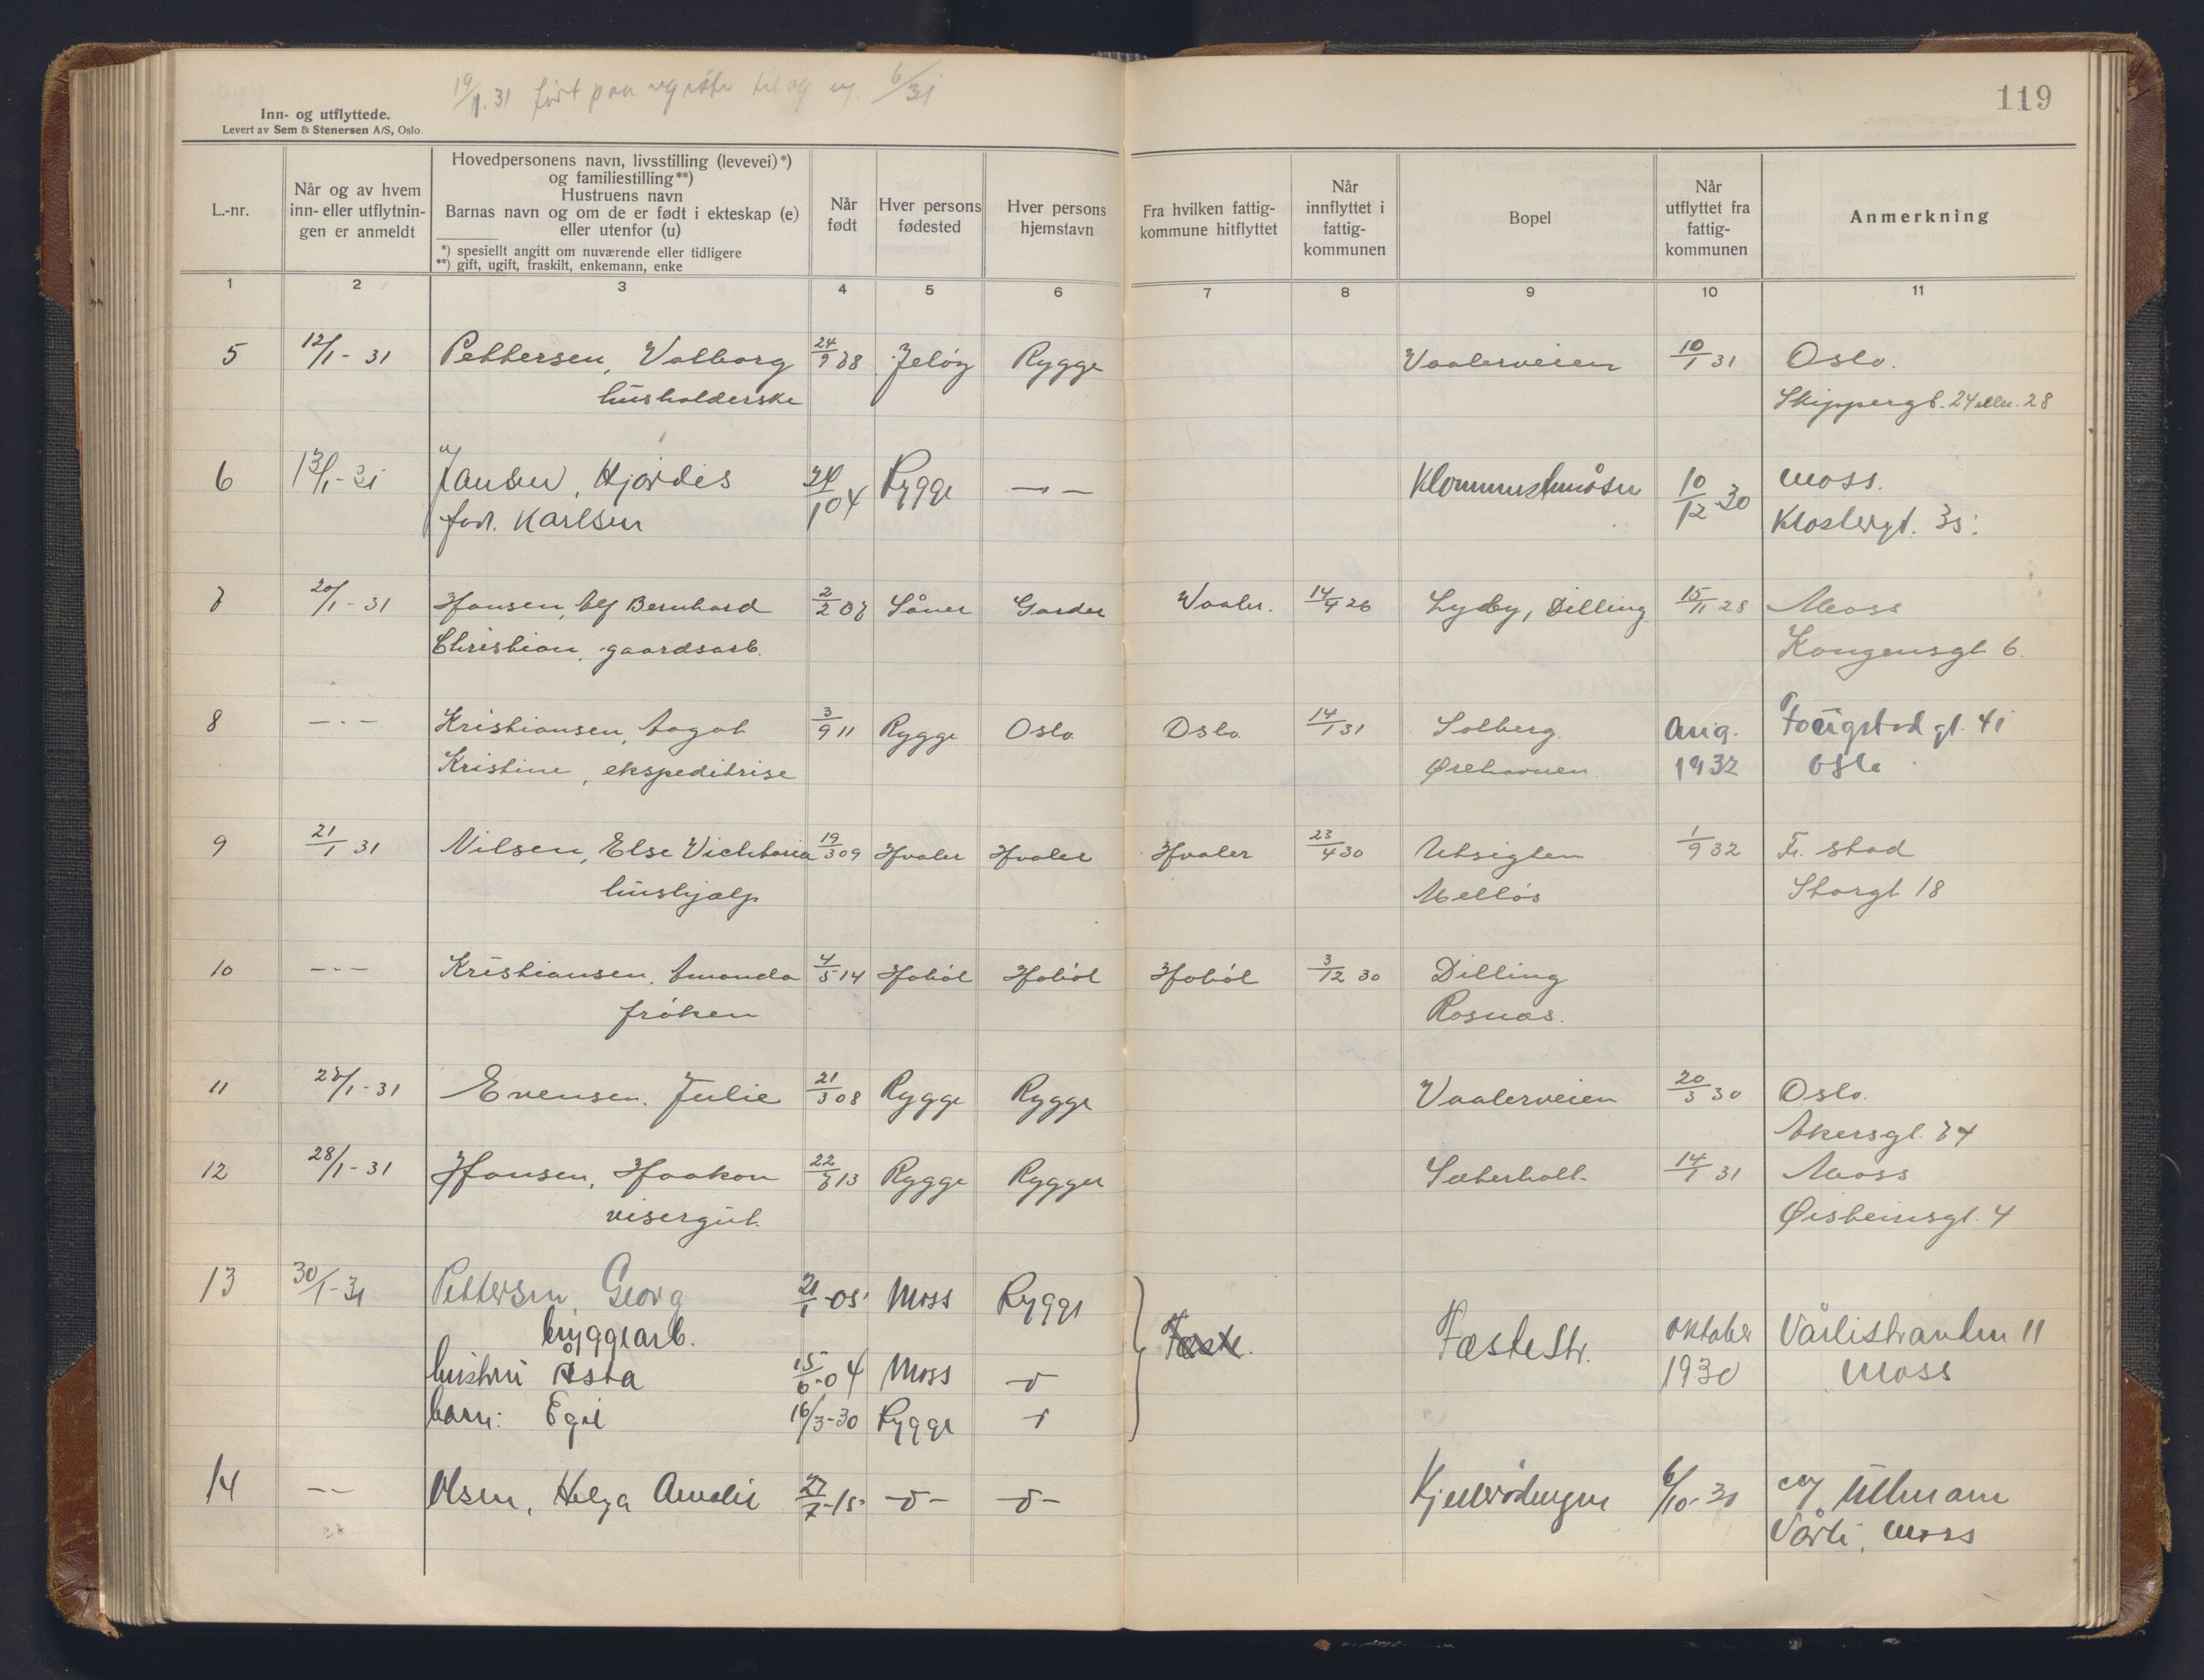 19/1.31 ført paa 6/31
119
Inn- og utflyttede.
Levert av Sem & Stenersen A/S, Oslo.
L.-nr.
Når og av hvem
inn- eller utflytnin-
gen er anmeldt
Hovedpersonens navn, livsstilling (levevei)*)
og familiestilling**)
Hustruens navn
Barnas navn og om de er født i ekteskap (e)
eller utenfor (u)
*) spesiellt angitt om nuværende eller tidligere
**) gift, ugift, fraskilt, enkemann, enke
Når
født
Hver persons
fødested
Hver persons
hjemstavn
Fra hvilken fattig-
kommune hitflyttet
Når
innflyttet i
fattig-
kommunen
Bopel
Når
utflyttet fra
fattig-
kommunen
Anmerkning
1 2 3 4 5 6 7 8 9 10 11
5 12/1 - 31 Pettersen, Valborg 24/9 88 Jeløy Rygge Vaalerveien 10/1 31 Oslo.
husholderske Skippergt. 24 eller 28
6 13/1 - 31 Jansen, Hjørdis 04 Rygge —„— 10/12 30 Moss.
født Karlsen Klostergt. 35.
7 20/1 - 31 Hansen, Alf Bernhard 2/2 07 Såner Garder Vaaler. 14/4 26 Lyby, Dilling 15/11 28 Moss
Christian, gaardsarb. Kongensgt 6.
8 —„— Kristiansen, Aagot 3/9 11 Rygge Oslo Oslo 14/1 31 Solberg. Aug. Fougstad gt. 41
Kristine, ekspeditrise Ørehavnen 1932 Oslo
9 21/1 31 Nilsen, Else Vichtoria 19/3 09 Hvaler Hvaler Hvaler 23/4 30 Utsigten 1/9 32 Fr. stad
hushjælp Melløs Storgt 18
10 —„— Kristiansen, Amanda 4/5 14 Hobøl Hobøl Hobøl 3/12 30 Dilling
frøken Rosnæs.
11 27/1 - 31 Evensen. Julie 21/3 08 Rygge Rygge Vaalerveien 20/3 30 Oslo.
Akersgt. 74
12 28/1 - 31 Hansen, Haakon 22/7 13 Rygge Rygge Sæterholt. 14/1 31 Moss
visergut. Øisteinsgt. 4
13 30/1 - 31 Pettersen, Georg 21/1 - 05 Moss Rygge Fæste. FæsteStr. Oktober Vårlistranden 11
bryggearb. 1930 Moss
hustru Åsta 15/6 - 04 Moss —"—
barn: Egil 16/3 - 30 Rygge "
14 —"— Olsen, Helga Amalie 27/7 - 15 —"— —"— 6/10 - 30 c/o Ullmann
Vårli, Moss